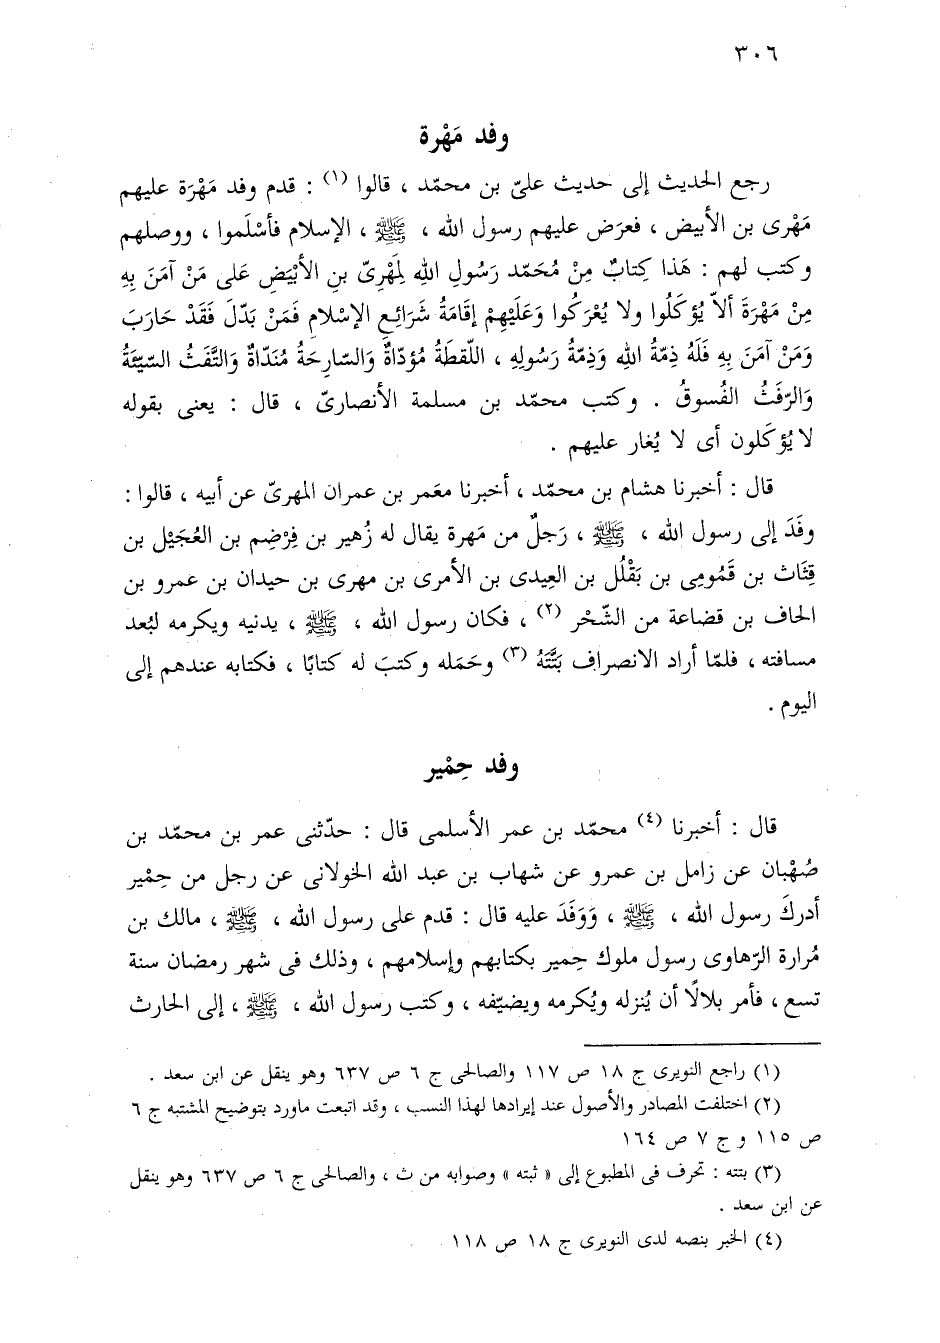 ٣٠٦
وفد مَهْرة
رجع الحديث إلى حديث علىّ بن محمّد ، قالوا (١) : قدم وفد مَهْرَة عليهم
مَهْرى بن الأبيض ، فعرَض عليهم رسول الله ، ﷺ ، الإسلام فأسْلَموا ، ووصلهم
وكتب لهم : هَذا كِتابٌ مِنْ مُحَمّد رَسُولِ اللهِ لِمَهْرِىّ بنِ الأبْيَضِ عَلى مَنْ آمَنَ بِهِ
مِنْ مَهْرَةَ ألاّ يُؤكَلُوا ولا يُعْرَكُوا وَعَلَيْهِمْ إقَامَةُ شَرَائِعِ الإسْلامِ فَمَنْ بَدّلَ فَقَدْ حَارَبَ
وَمَنْ آمَنَ بِهِ فَلَهُ ذِمّةُ اللهِ وَذِمّةُ رَسُولِهِ ، اللّقطَةُ مُؤدّاةٌ وَالسّارِحَةُ مُنَدّاةٌ وَالتَّفَثُ السّيّئَةُ
وَالرّفَثُ الفُسوقُ . وكتب محمّد بن مسلمة الأنصارىّ ، قال : يعنى بقوله
لا يُؤكَلون أى لا يُغار عليهم .
قال : أخبرنا هشام بن محمّد ، أخبرنا معمر بن عمران المهرىّ عن أبيه ، قالوا :
وفَدَ إلى رسول الله ، ﷺ ، رَجلٌ من مَهرة يقال له زُهير بن فِرْضِم بن العُجَيْل بن
قِثَاث بن قَمُومِى بن بَقْلُل بن العِيدى بن الأمرى بن مهرى بن حيدان بن عمرو بن
الحاف بن قضاعة من الشّحْر (٢) ، فكان رسول الله ، ﷺ ، يدنيه ويكرمه لبُعد
مسافته ، فلمّا أراد الانصراف بَتَّتَهُ (٣) وحَمَله وكتبَ له كتابًا ، فكتابه عندهم إلى
اليوم .
وفد حِمْير
قال : أخبرنا (٤) محمّد بن عمر الأسلمى قال : حدّثنى عمر بن محمّد بن
صُهْبان عن زامل بن عمرو عن شهاب بن عبد الله الخولانى عن رجل من حِمْير
أدركَ رسول الله ، ﷺ ، وَوَفَدَ عليه قال : قدم على رسول الله ، ﷺ ، مالك بن
مُرارة الرّهاوى رسول ملوك حِمير بكتابهم وإسلامهم ، وذلك فى شهر رمضان سنة
تسع ، فأمر بلالًا أن يُنزله ويُكرمه ويضيّفه ، وكتب رسول الله ، ﷺ ، إلى الحارث
(١) راجع النويرى ج ١٨ ص ١١٧ والصالحى ج ٦ ص ٦٣٧ وهو ينقل عن ابن سعد .
(٢) اختلفت المصادر والأصول عند إيرادها لهذا النسب ، وقد اتبعت ماورد بتوضيح المشتبه ج ٦
ص ١١٥ و ج ٧ ص ١٦٤
(٣) بتته : تحرف فى المطبوع إلى « ثبته » وصوابه من ث ، والصالحى ج ٦ ص ٦٣٧ وهو ينقل
عن ابن سعد .
(٤) الخبر بنصه لدى النويرى ج ١٨ ص ١١٨